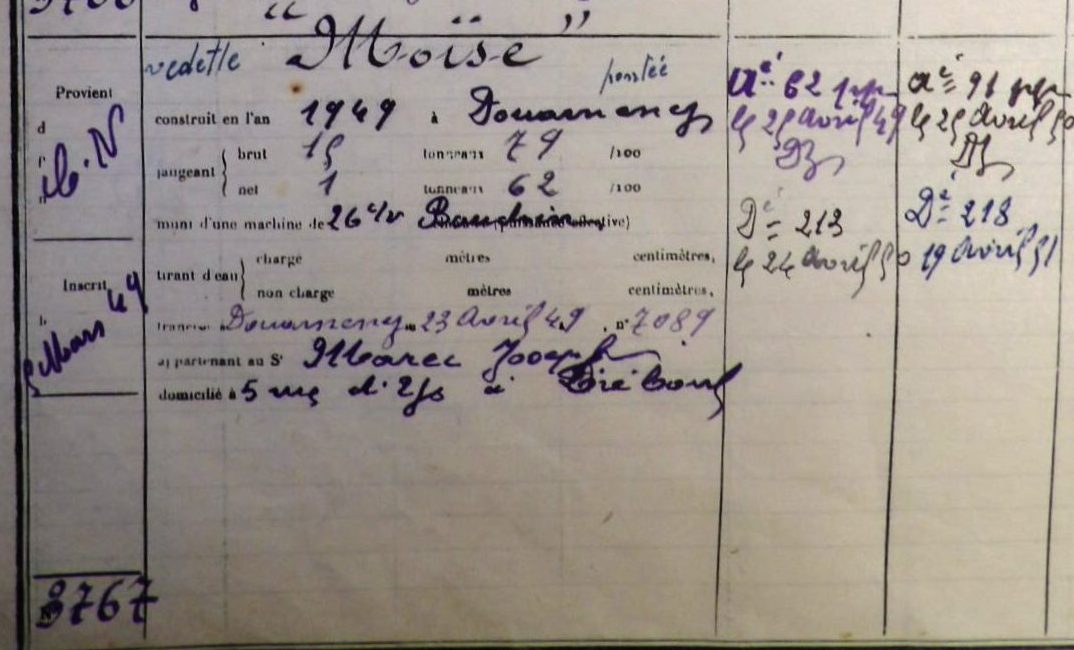 " Moïse "
vedette pontée
Provient
d
C.N
construit en l'an 1949 à Douarnenez
jaugeant { brut 15 tonneaux 79 /100
net 1 tonneaux 62 /100
muni d'une machine de 26 c/v Baudouin
tirant d'eau { charge mètres centimètres,
non charge mètres centimètres,
Douarnenez 23 Avril 49, n° 7089
appartenant au Sr Marec Joseph
domicilié à 5 rue d'Ys à Tréboul
Inscrit
Mars 49
3767
Ae 62
le 25 avril 49
Dz
De 213
le 24 avril 50
ae 91
le 25 Avril 50
Dz
De 218
19 Avril 51